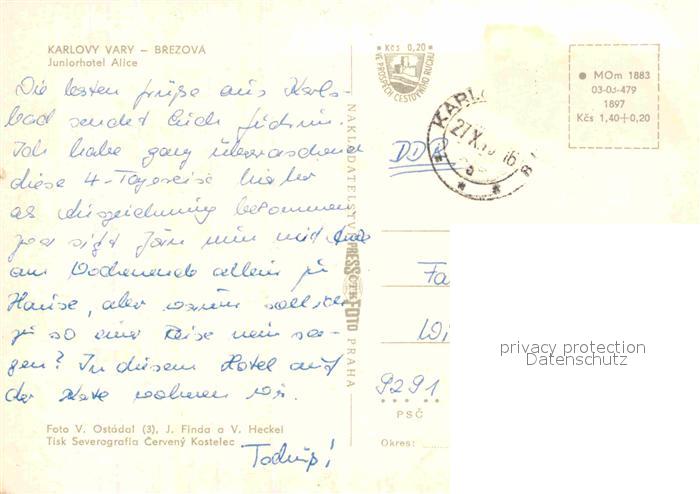 KARLOVY VARY – BŘEZOVÁ
Juniorhotel Alice
Die besten Grüße aus Karls-
bad sendet Euch
Ich habe ganz überraschend
diese 4-Tagereise
als Auszeichnung bekommen
nun mit
am Wochenende allein zu
Hause, aber warum soll ich
zu so einer Reise nein sa-
gen? In diesem Hotel auf
der Karte wohnen wir.
Foto V. Ostádal (3), J. Finda a V. Heckel
Tisk Severografia Červený Kostelec
Tschüß!
NAKLADATELSTVÍ PRESSFOTO PRAHA
ČTK
Kčs 0,20
VE PROSPĚCH CESTOVNÍHO RUCHU
KARLO
27.X.
MOm 1883
03-03-479
1897
Kčs 1,40+0,20
DDR
Fa
Wi
9291
PSČ
Okres:
privacy protection
Datenschutz